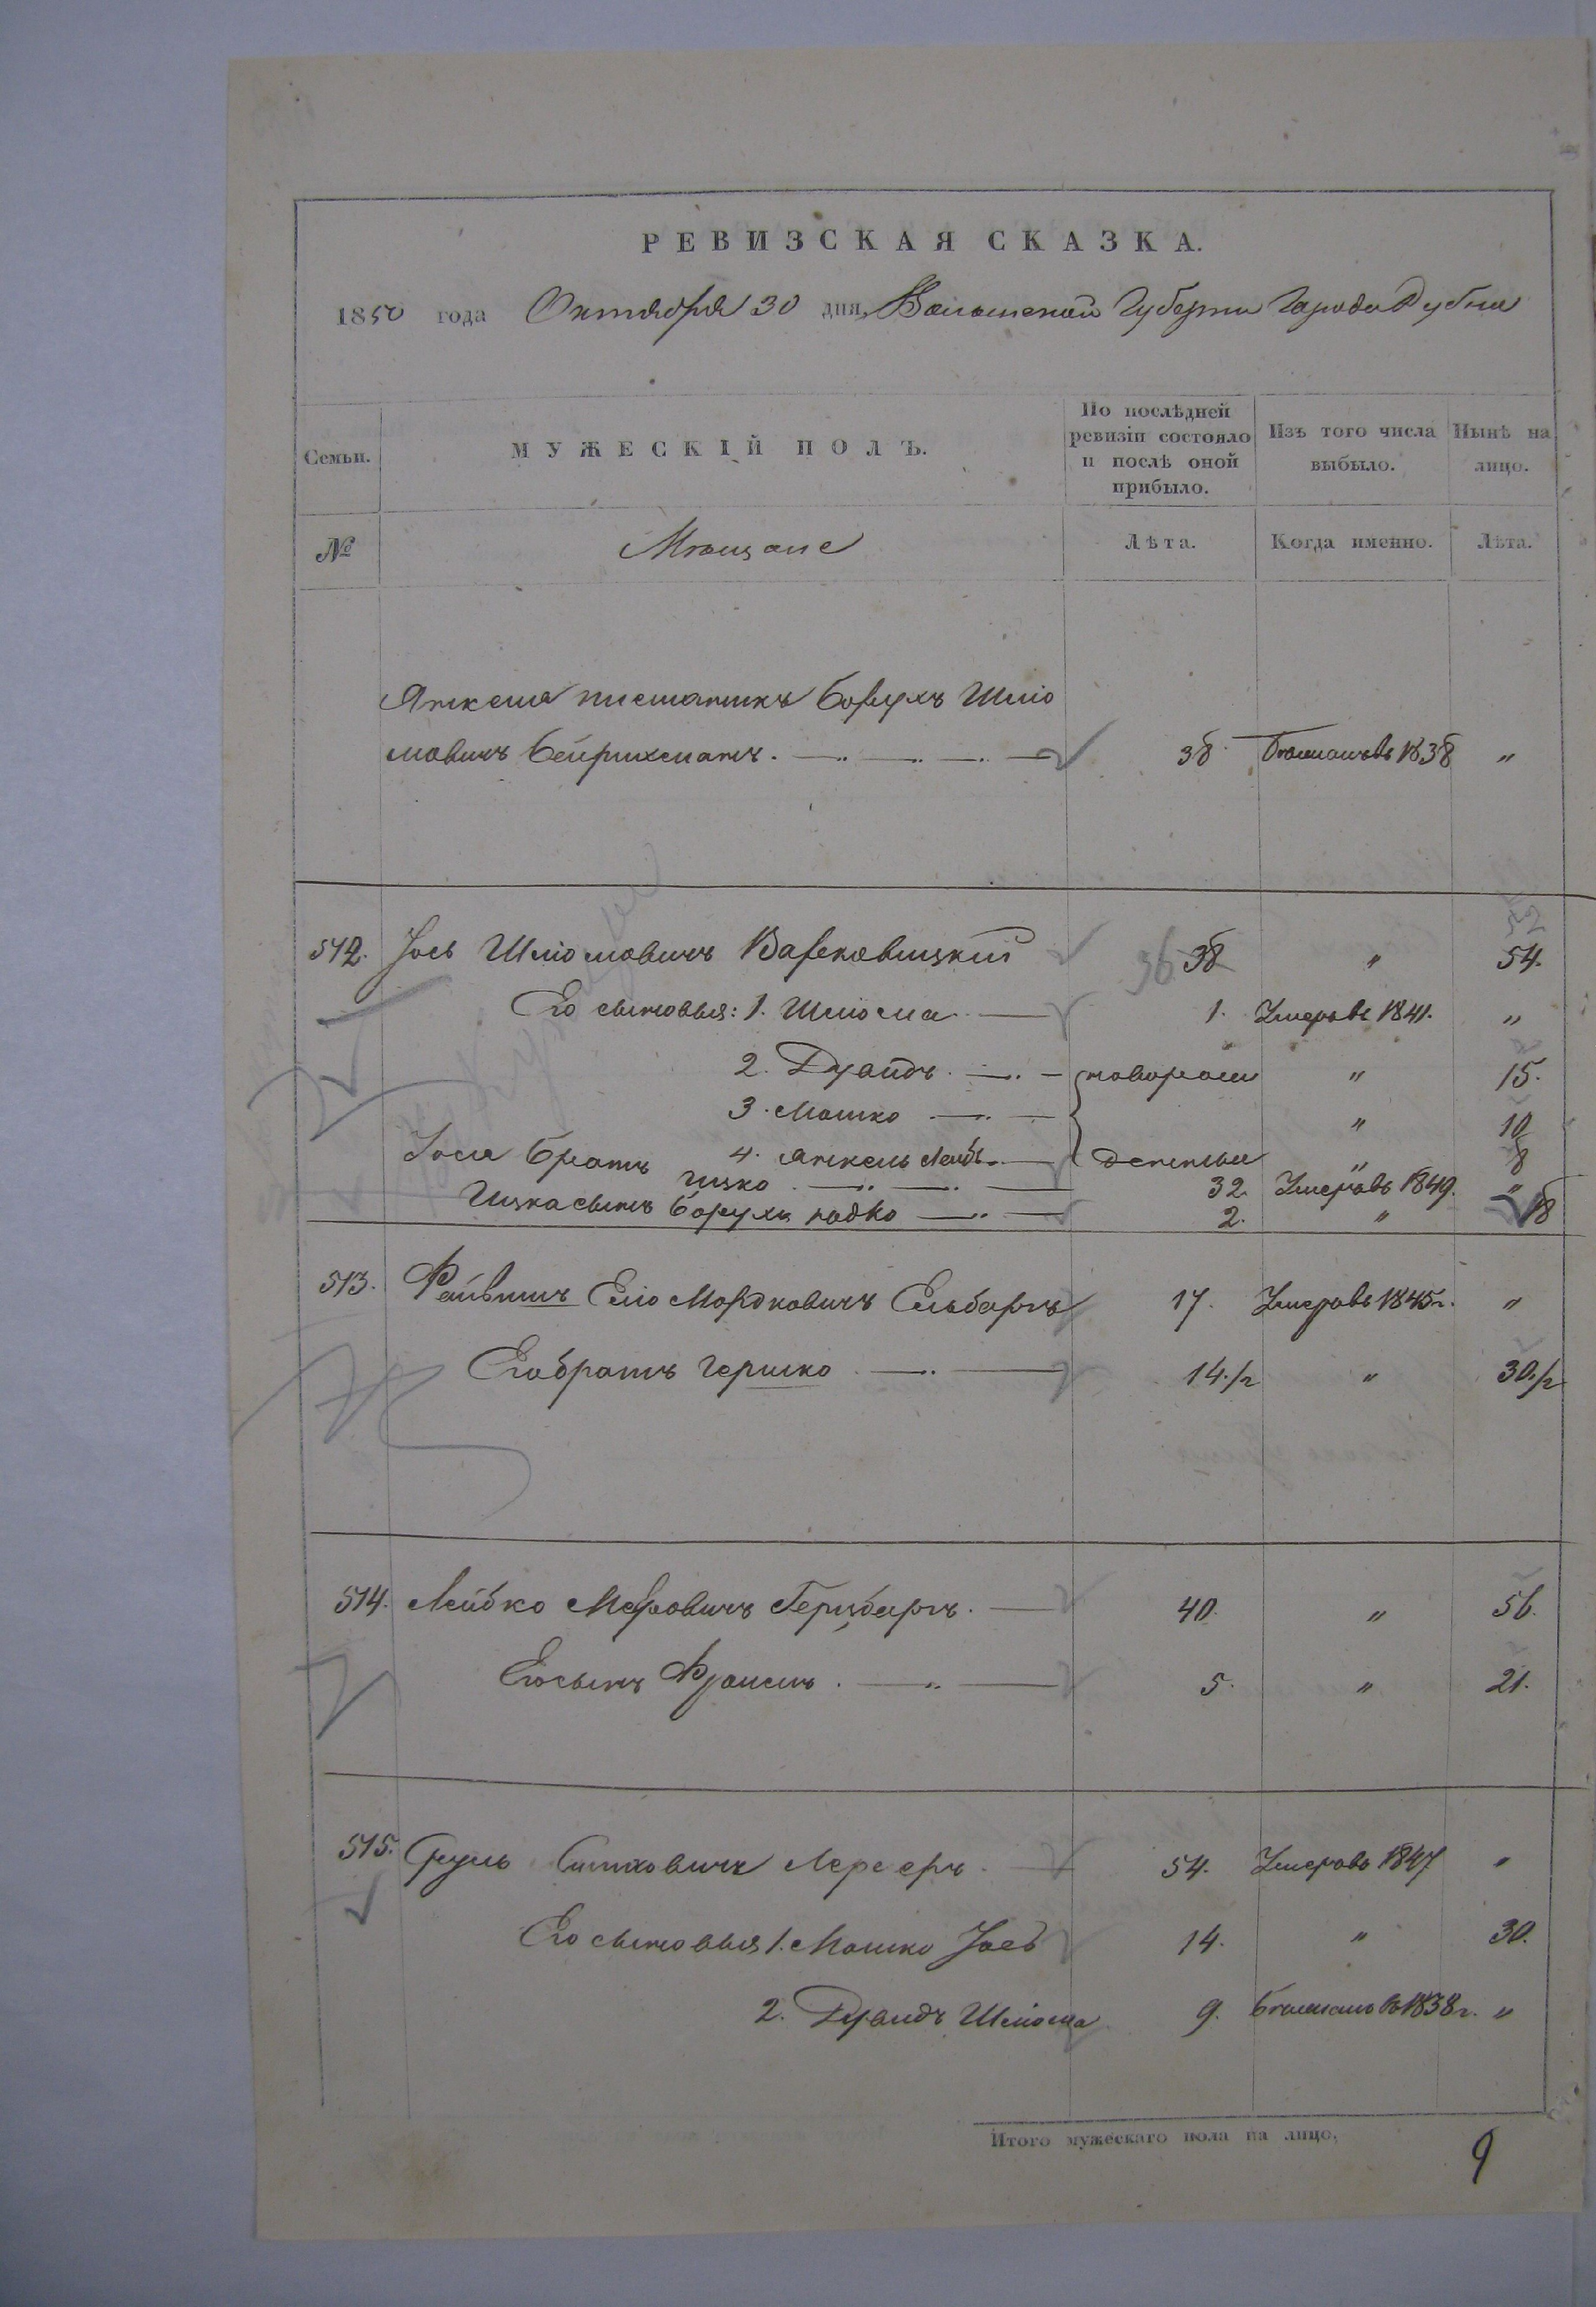 РЕВИЗСКАЯ СКАЗКА.
1850 года Октября 30 дня, Волынской Губернии Города Дубна
Семьи.
МУЖЕСКІЙ ПОЛЪ.
По послѣдней ревизіи состояло и послѣ оной прибыло.
Изъ того числа выбыло.
Нынѣ на лицо.
№
Мѣщане
Лѣта.
Когда именно.
Лѣта.
Борухъ Шліо
мовичъ 38 1838 "
512. Іось Шліомовичъ 38 " 54.
Его сыновья: 1. Шліома 1. Умеръ въ 1841. "
2. Дувидъ новорож " 15.
3. Мошко " 10
4. Янкель Лейбъ денные " 8
Іося братъ Ицко 32. Умеръ въ 1849. "
Ицка сынъ Борухъ 2. " 18
513. Файвишъ Еліо Мордковичъ Ельбергъ 17. Умеръ въ 1845г. "
Его братъ Гершко 14./2 " 30./2
514. Лейбко Меровичъ Герцбергъ. 40. " 56.
Его сынъ Фроимъ. 5. " 21.
515. Сруль Симховичъ Лернеръ 54. Умеръ въ 1847 "
Его сыновья 1. Мошко Іось 14. " 30.
2. Дувидъ Шліома 9. 1838г. "
Итого мужескаго пола на лицо,
9